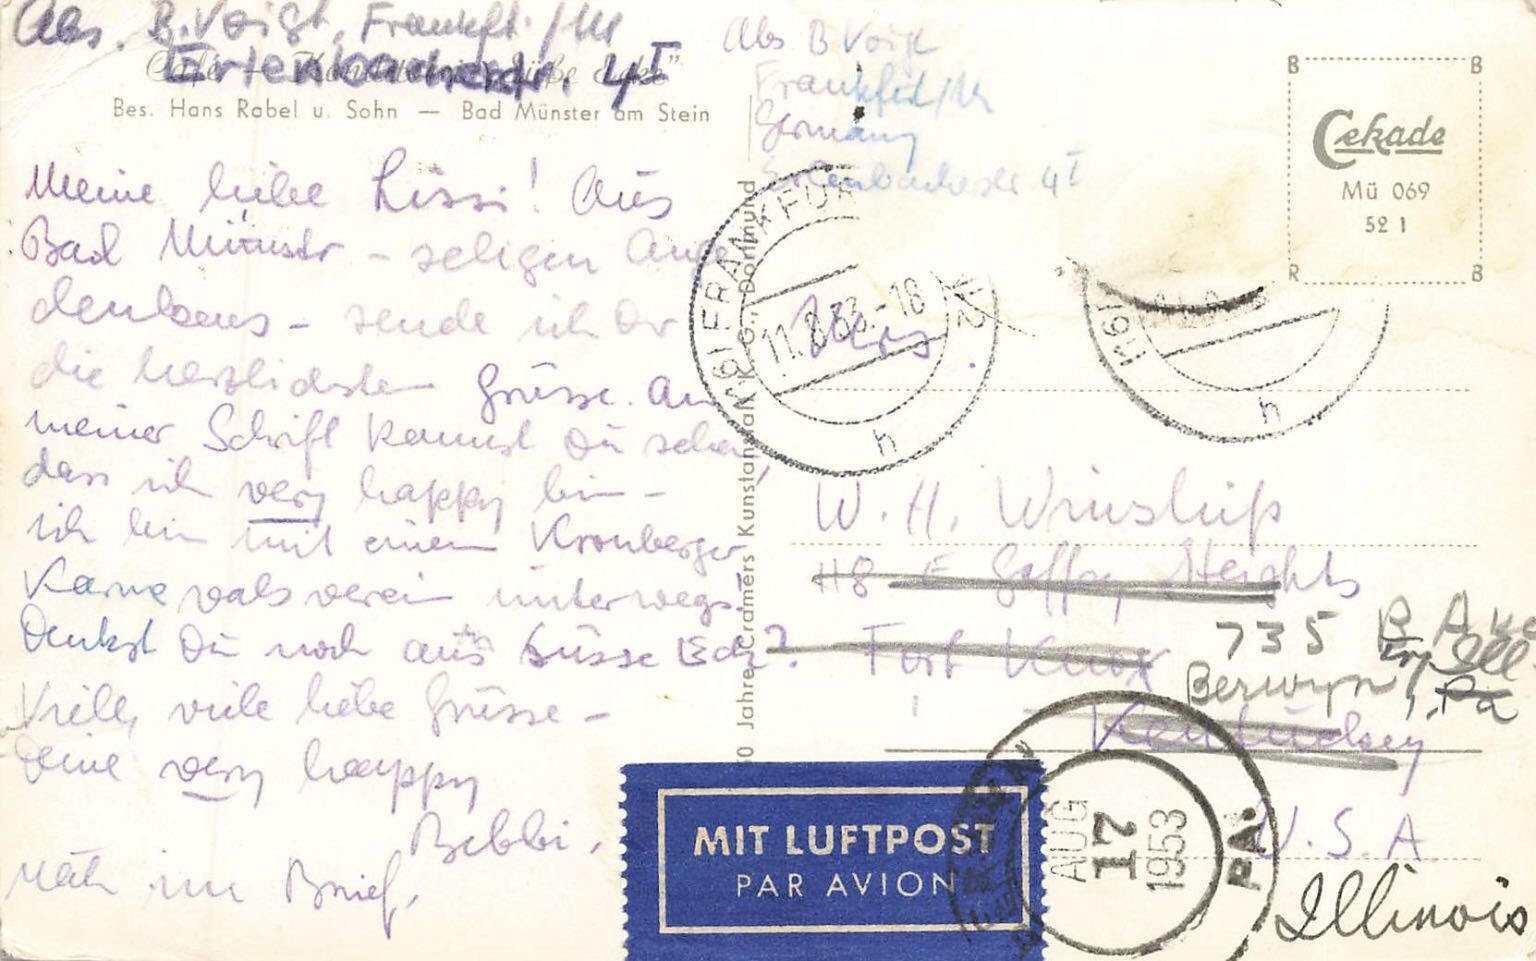 Abs. B. Voigt, Frankft./M
Erlenbacherstr. 4I
Bes. Hans Rabel u. Sohn — Bad Münster am Stein
Meine liebe Lissi! Aus
Bad Münster – seligen Ange
denkens – sende ich Dir
die herzlichsten Grüsse. An
meiner Schrift kannst Du sehen,
dass ich very happy bin –
ich bin mit einem Kronberger
Karnevalsverein unterwegs.
Denkst Du noch ans Süsse Eck?
Viele, viele liebe Grüsse –
Deine very happy
Bebbi.
Näh im Brief.
Jahre Cramers Kunstanstalt K.-G., Dortmund
Abs B Voigt
Frankfurt/M
Germany
Erlenbacherstr 4I
Cekade
Mü 069
52 1
B B R B
(16) FRANKFUR
11.8.53.-18
h
(16)
h
Mrs.
W. H. Winship
H8 E Gaffey Heights
Fort Knox
Kentuckey
U.S.A.
735
Berwyn, Pa
Ill
Illinois
MIT LUFTPOST
PAR AVION
AUG
17
1953
PA.